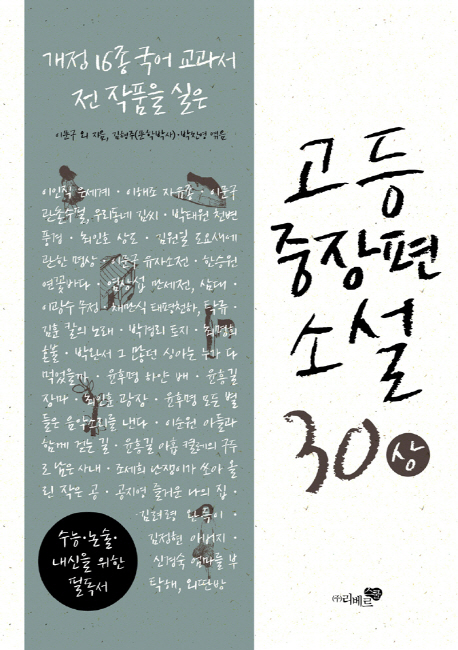 개정 16종 국어 교과서
전 작품을 실은
이문구 외 지음, 김형주(문학박사)·박찬영 엮음
이인직 은세계 · 이해조 자유종 · 이문구
관촌수필, 우리동네 김씨 · 박태원 천변
풍경 · 최인호 상도 · 김원일 도요새에
관한 명상 · 이문구 유자소전 · 한승원
연꽃바다 · 염상섭 만세전, 삼대 ·
이광수 무정 · 채만식 태평천하, 탁류 ·
김훈 칼의 노래 · 박경리 토지 · 최명희
혼불 · 박완서 그 많던 싱아는 누가 다
먹었을까 · 윤후명 하얀 배 · 윤흥길
장마 · 최인훈 광장 · 윤후명 모든 별
들은 음악소리를 낸다 · 이순원 아들과
함께 걷는 길 · 윤흥길 아홉 켤레의 구두
로 남은 사내 · 조세희 난쟁이가 쏘아 올
린 작은 공 · 공지영 즐거운 나의 집 ·
김려령 완득이 ·
김정현 아버지 ·
신경숙 엄마를 부
탁해, 외딴방
수능·논술·
내신을 위한
필독서
고등
중장편
소설
30 상
(주)리베르 스쿨